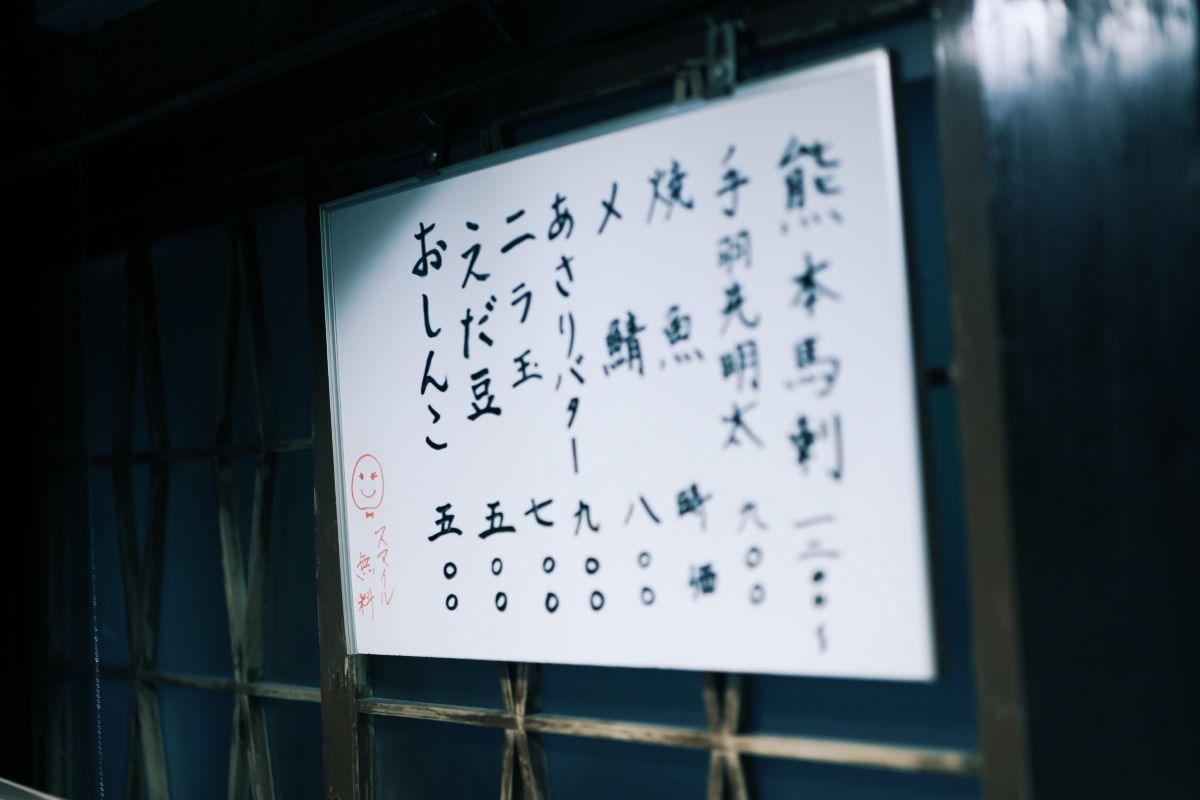 熊本馬刺 一二〇〇〜
手羽先明太 六〇〇
焼魚 時価
〆鯖 八〇〇
あさりバター 九〇〇
ニラ玉 七〇〇
えだ豆 五〇〇
おしんこ 五〇〇
スマイル
無料